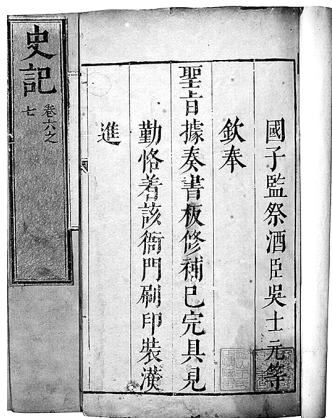 史記
卷六之
七
國子監祭酒臣吳士元等
欽奉
聖旨據奏書板修補已完具見
勤恪着該衙門刷印裝潢
進